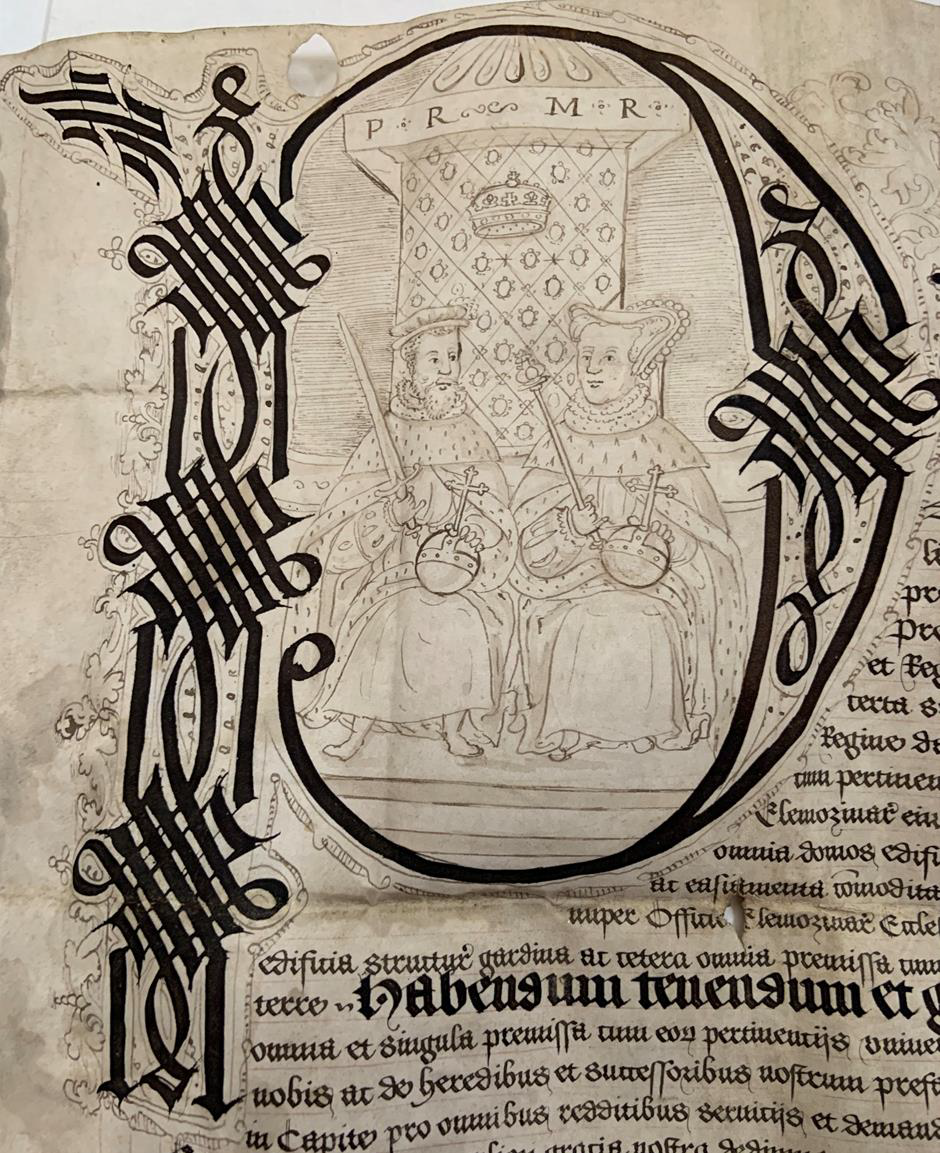 P R M R
pre
et Reg
certa
Regine de
cum pertinen
Elemozinar̃ eiu
omnia domos edifi
ac easiamenta com̃odita
nuper Officio Elemozinar̃ Eccle
edificia structur̃ gardina ac cetera omnia premissa cum
terre Habendum tenendum et g
omnia et singula premissa cum eoꝝ pertinentijs
nobis ac de heredibus et successoribus nostrum prefa
in Capite pro omnibus redditibus seruitijs et demand
gracia nostra dedimus